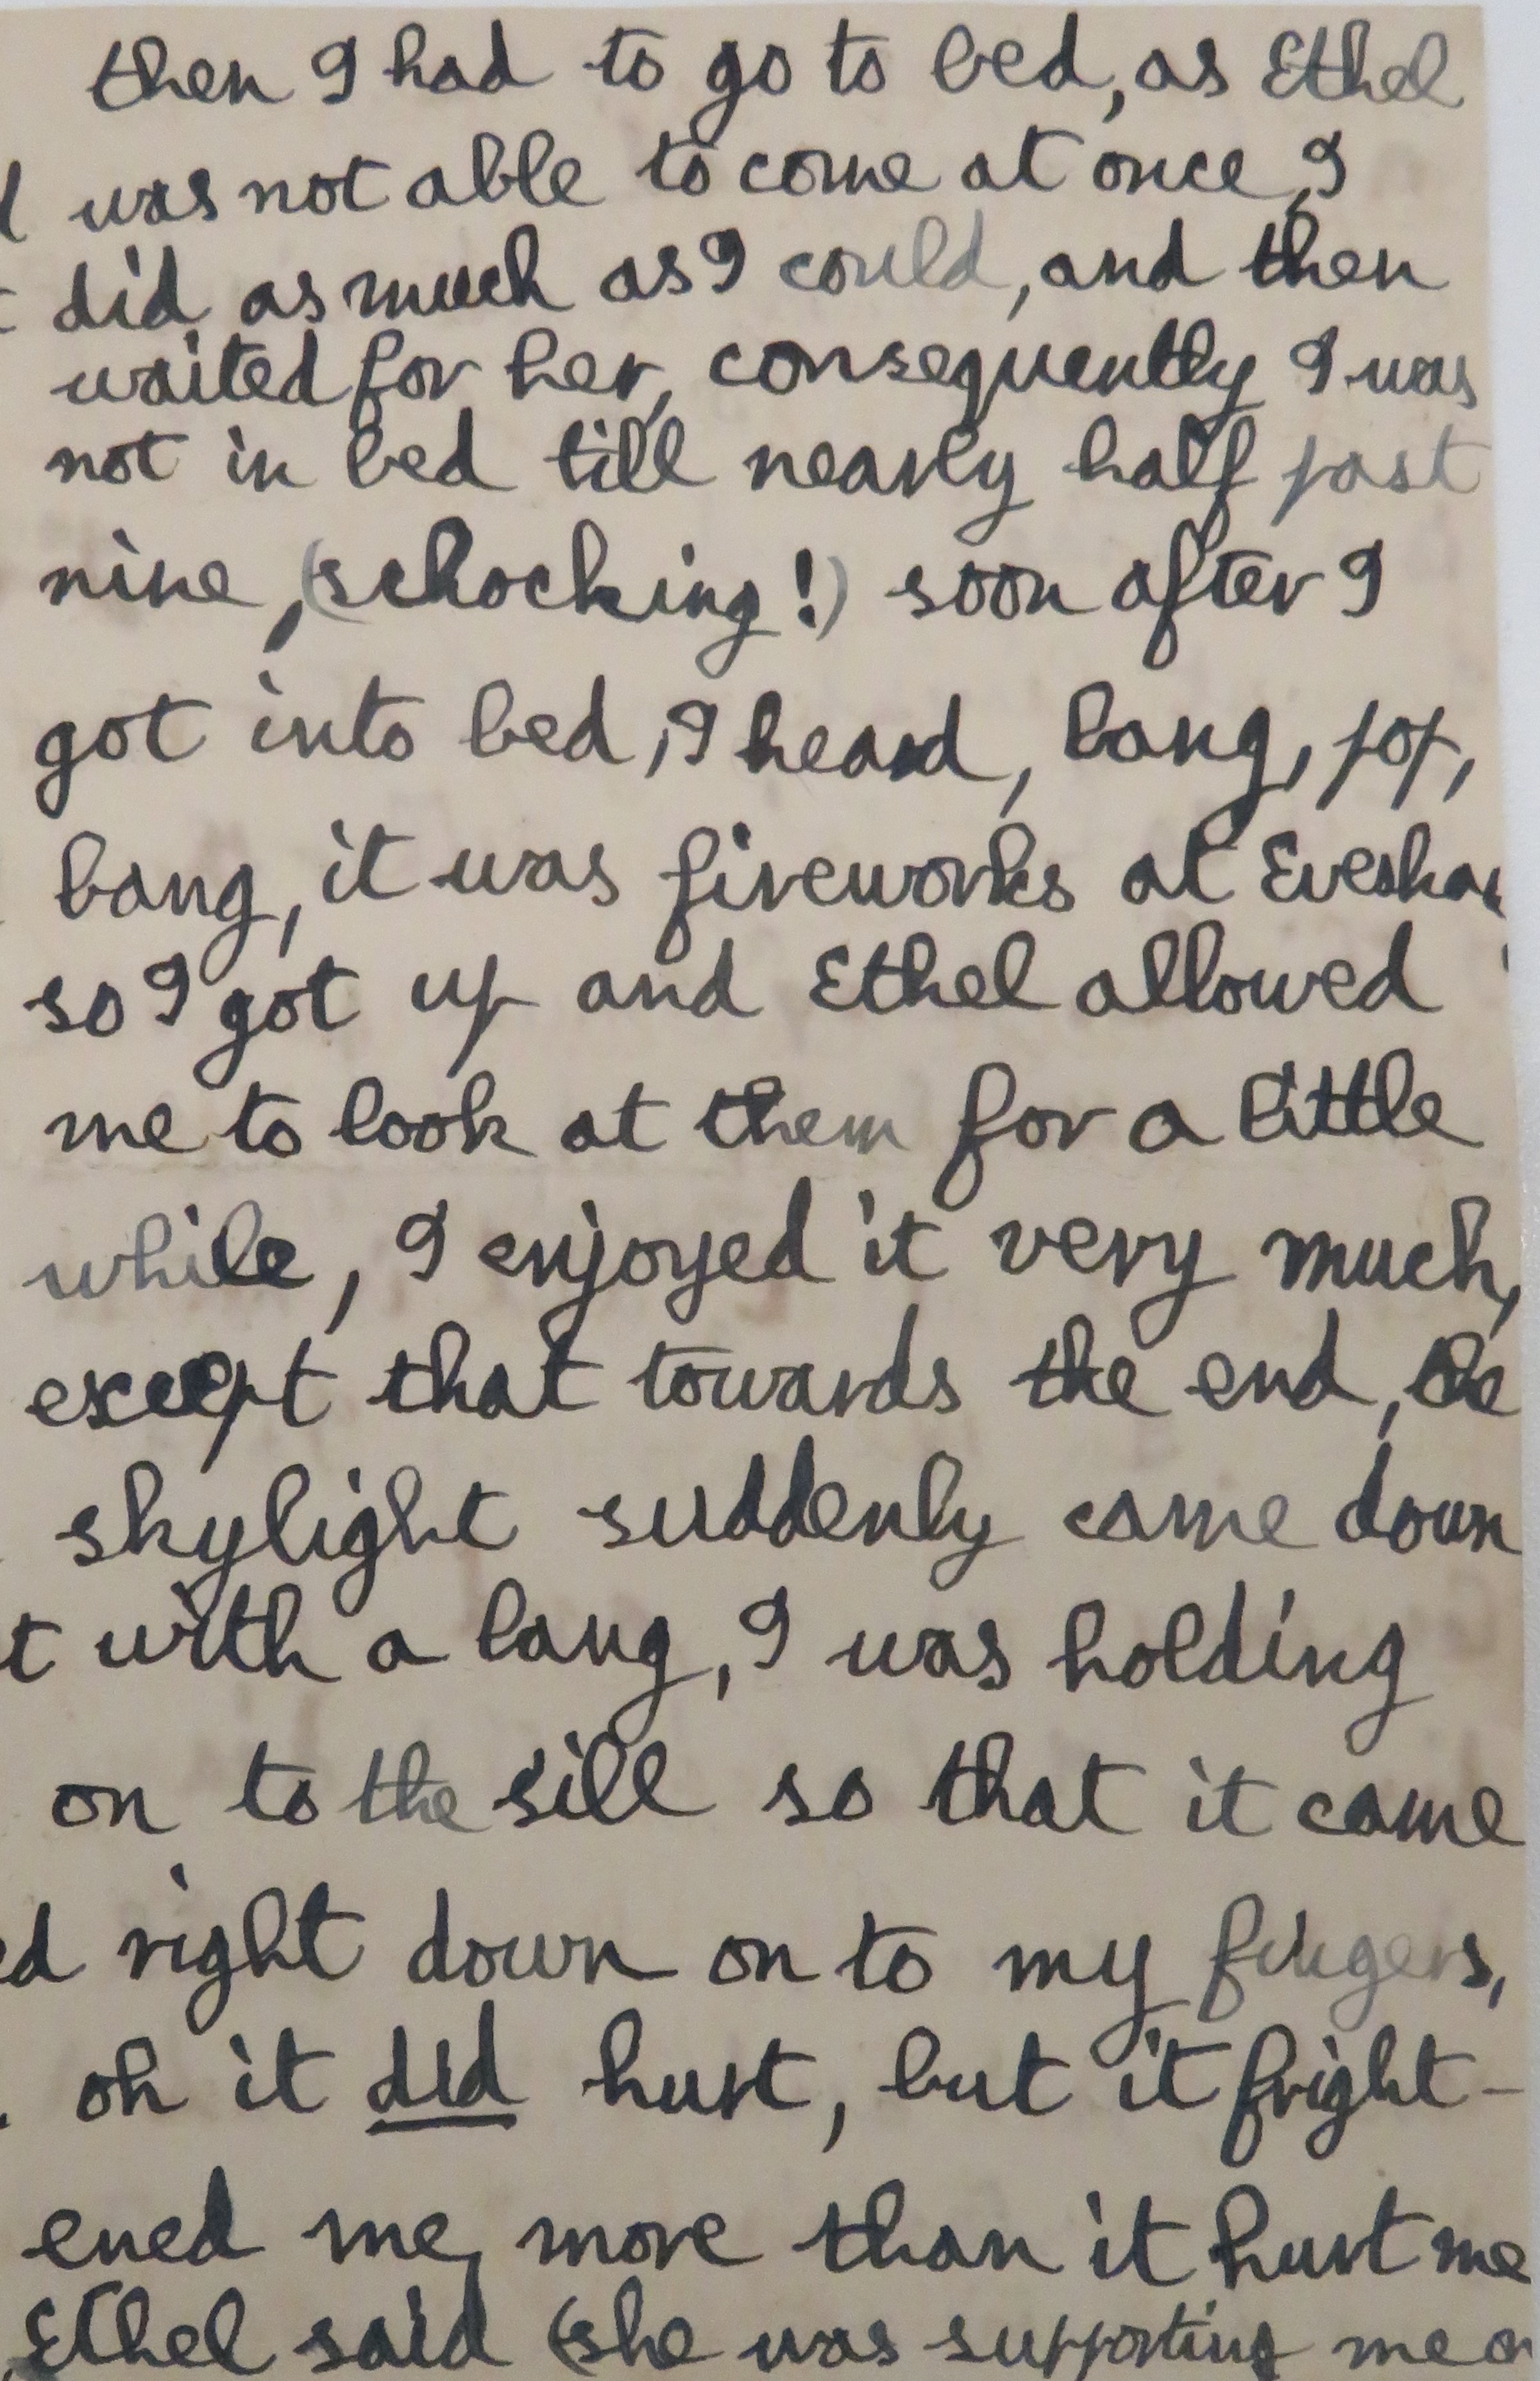 then I had to go to bed, as Ethel
was not able to come at once, I
did as much as I could, and then
waited for her, consequently I was
not in bed till nearly half past
nine, (schocking!) soon after I
got into bed, I heard, bang, pop,
bang, it was fireworks at Evesha
so I got up and Ethel allowed
me to look at them for a little
while, I enjoyed it very much,
except that towards the end, the
skylight suddenly came down
t with a bang, I was holding
on to the sill so that it came
ed right down on to my fingers,
oh it did hurt, but it fright-
ened me, more than it hurt me
Ethel said (she was supporting me o